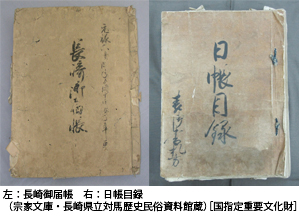 長崎御届帳
日帳目録
左：長崎御届帳　右：日帳目録
（宗家文庫・長崎県立対馬歴史民俗資料館蔵）[国指定重要文化財]